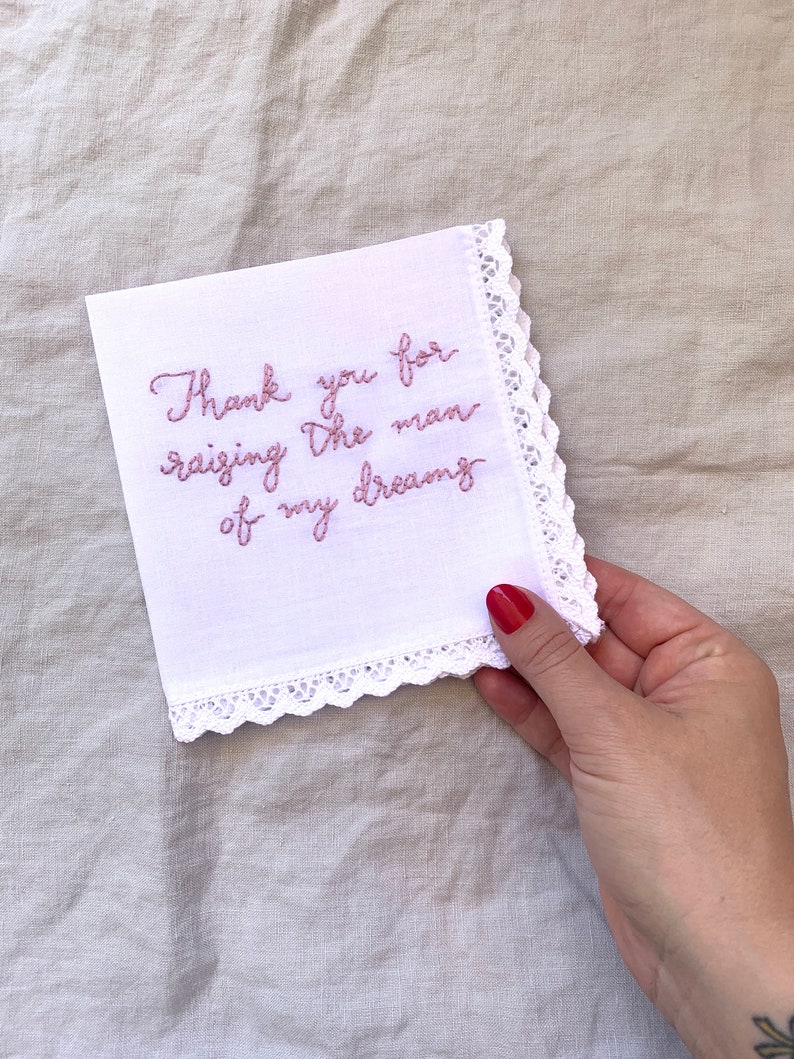 Thank you for
raising the man
of my dreams